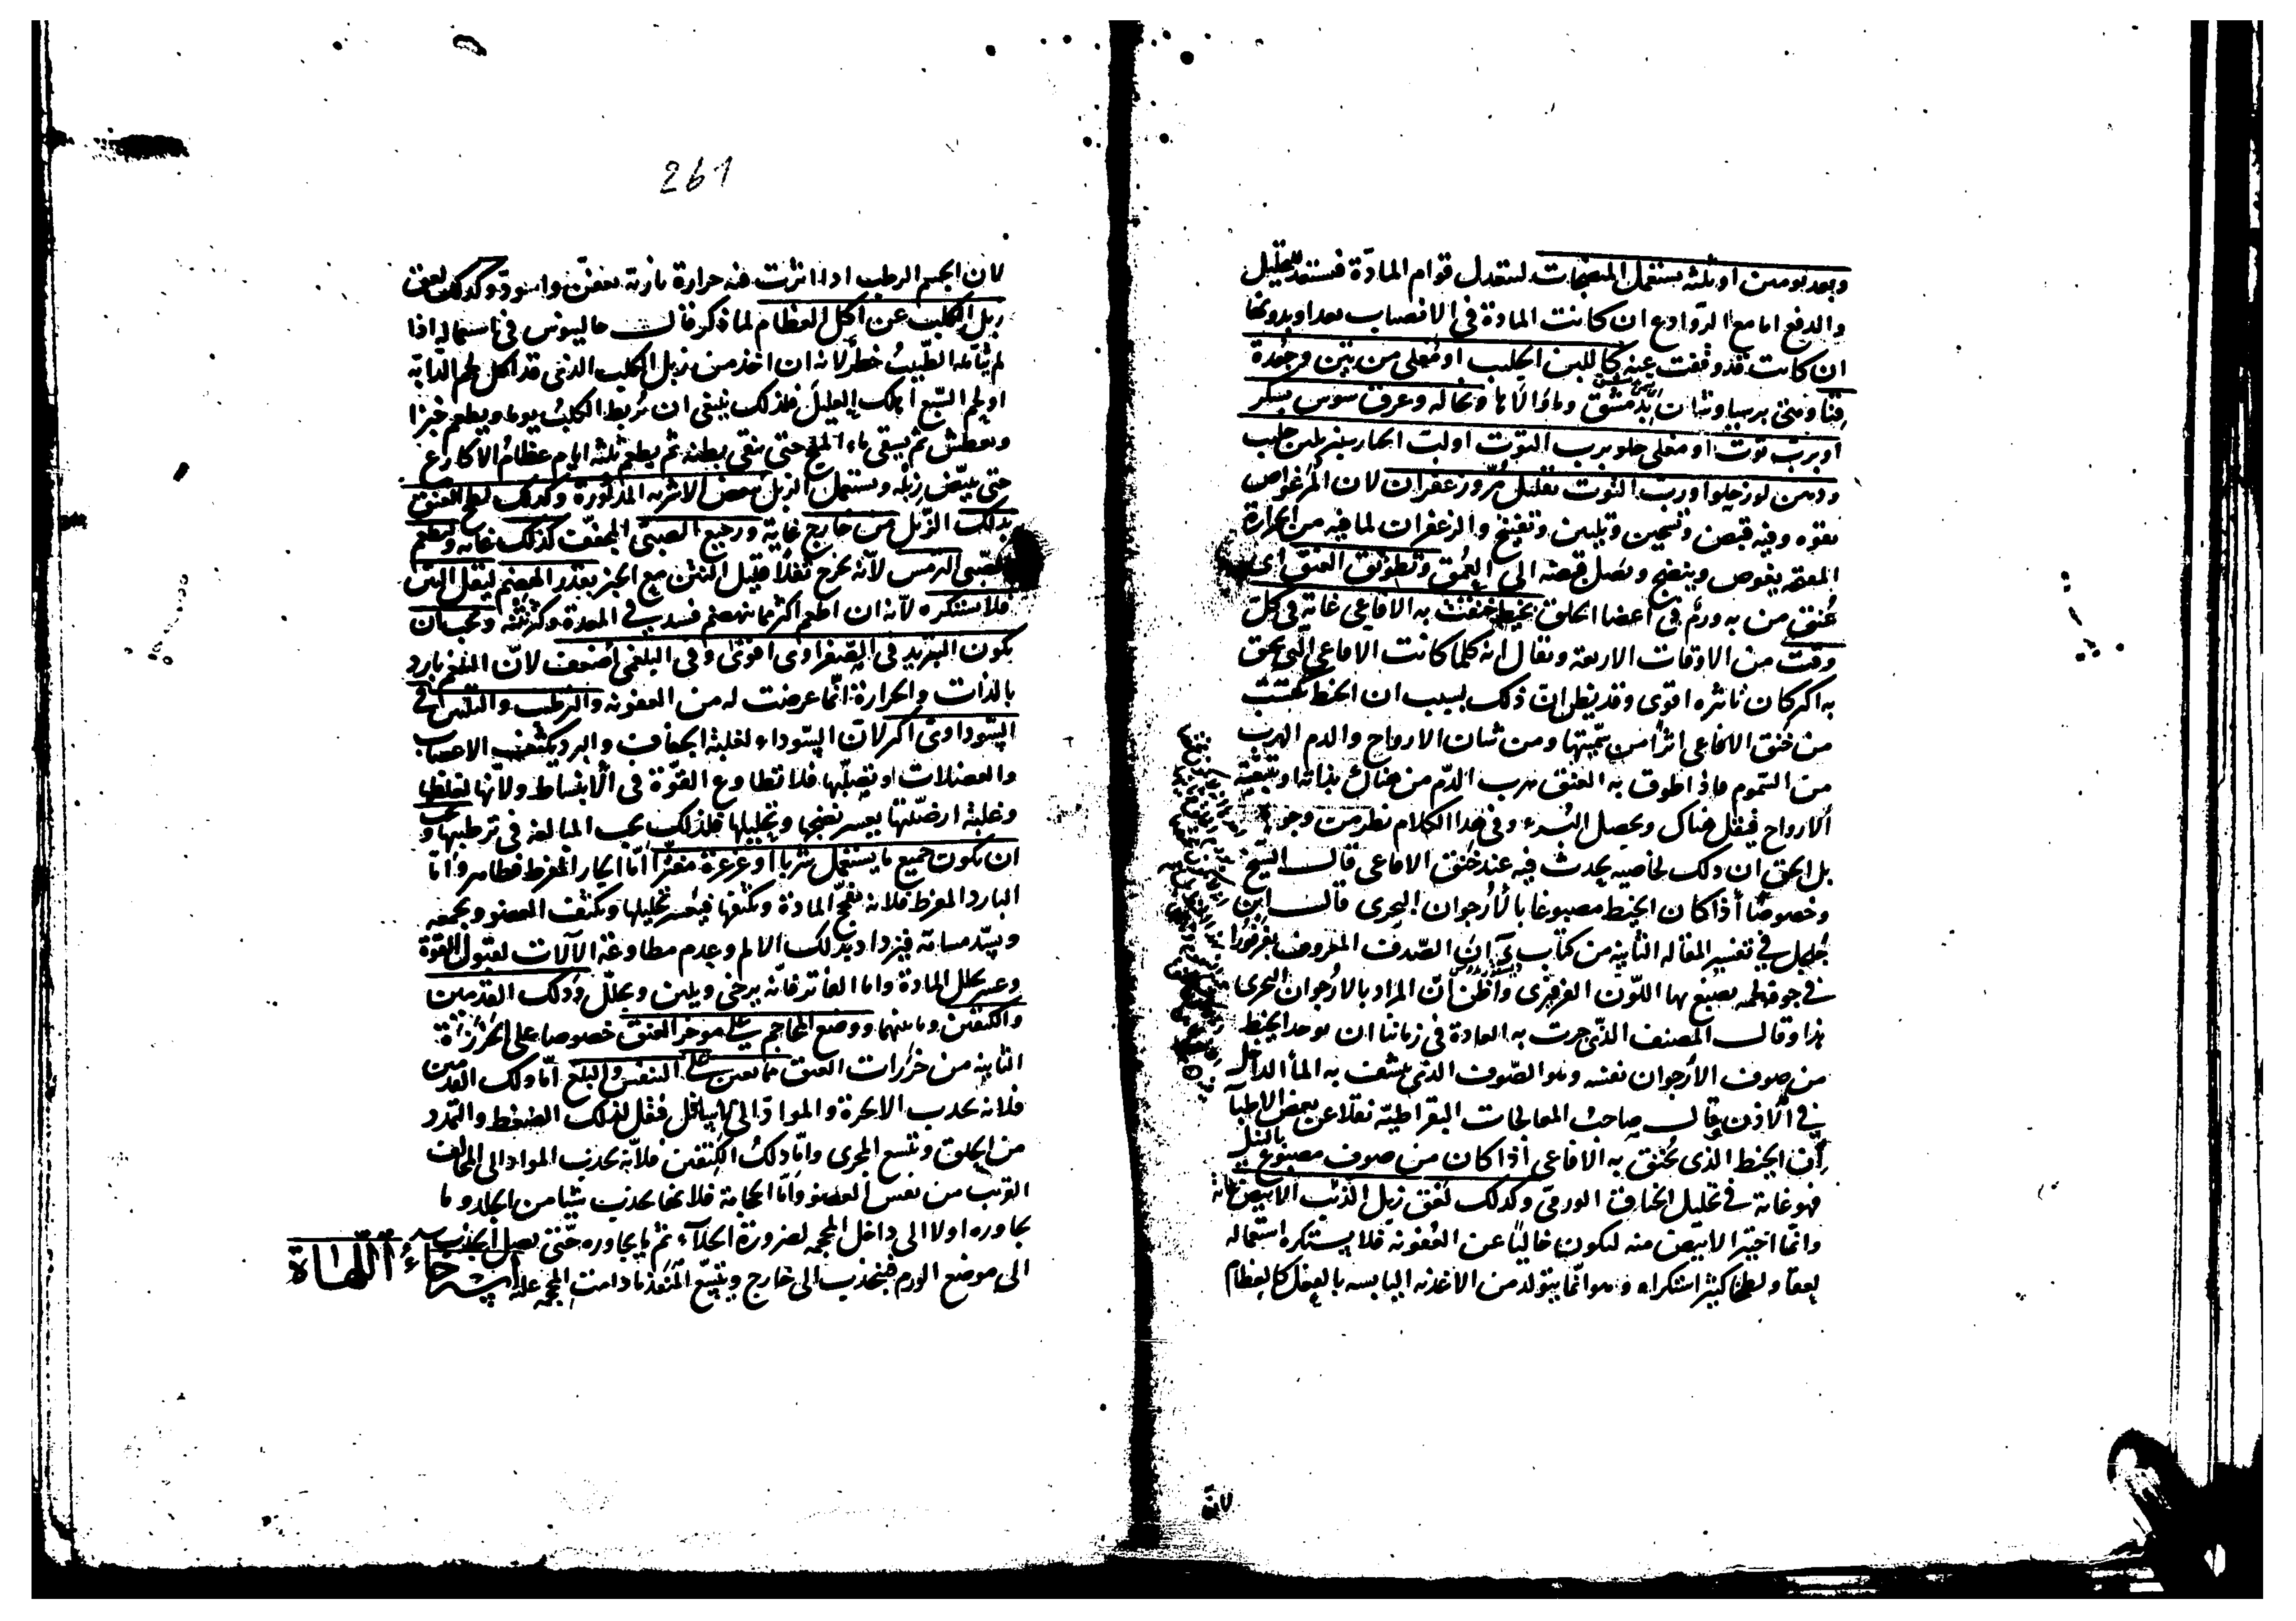 وبعد يومين او ثلثة يستعمل المنضجات لتعدل قوام المادة فتستعد للتحليل
والدفع اما مع الروادع ان كانت المادة في الانصباب بعد او بدونها
ان كانت قد وقفت عنه كاللبن الحليب او مغلى من تين وجعدة
او برب توت او مغلى حلو برب التوت او لب الخيارشنبر بلبن حليب
ودهن لوز حلو او رب التوت بقليل مر وزعفران لان المر غواص
بقوة وفيه قبض وتسخين وتليين وتفتيح والزعفران لما فيه من الحرارة
المعتدلة يغوص وينضج ويصل قبضه الى العمق وتطويق العنق اى
عنق من به ورم في اعضا الحلق بخيط خنقت به الافاعي غاية في كل
وقت من الاوقات الاربعة ويقال انه كلما كانت الافاعي التي خنق
به اكثر كان تاثيره اقوى وقد يظن ان ذلك بسبب ان الخيط يكتسب
من خنق الافاعي اثرا من سميتها ومن شان الارواح والدم الهرب
من السموم فاذا طوق به العنق هرب الدم من هناك بذاته او بتبعية
الارواح فيقل هناك ويحصل البرء وفي هذا الكلام نظر من وجوه
بل الحق ان ذلك لخاصية يحدث فيه عند خنق الافاعي قال الشيخ
وخصوصا اذا كان الخيط مصبوغا بالارجوان البحرى قال ابن
جلجل في تفسير المقالة الثانية من كتاب ان الصدف المعروف بفرفورا
في جوفه لحمة يصبغ بها اللون الفرفيرى واظن ان المراد بالارجوان البحرى
هذا وقال المصنف الذي جرت به العادة في زماننا ان يوخد الخيط
من صوف الارجوان نفسه وهو الصوف الذي ينشف به الما الداخل
في الاذن وقال صاحب المعالجات البقراطية نقلا عن بعض الاطبا
ان الخيط الذي يخنق به الافاعي اذا كان من صوف مصبوغ بالنيل
فهو غاية في تحليل الخناق الورمى وكذلك لعق زبل الذئب الابيض فانه
وانما اختير الابيض منه ليكون خاليا عن العفونة فلا يستكره استعماله
لعقا ولطخا كثير استكراه وهو انما يتولد من الاغذية اليابسة بالفعل كالعظام
لان
261
لان الجسم الرطب اذا اثرت فيه حرارة نارية تعفن واسود وكذلك لعق
زبل الكلب عن اكل العظام لما ذكر قال جالينوس في استعماله اذا
لم يتامله الطبيب خطر لانه ان اخذ من زبل الكلب الذي قد اكل لحم الدابة
او لحم السبع اهلك العليل فلذلك ينبغي ان يربط الكلب يوما ويطعم خبزا
ويعطش ثم يسقى ماء الملح حتى ينقى بطنه ثم يطعم ثلثة ايام عظام الاكارع
حتى يبيض زبله ويستعمل الزبل ببعض الاشربة المذكورة وكذلك لطخ العنق
بذلك الزبل من خارج غاية ورجيع الصبي المجفف كذلك غاية ويطعم
الصبي الترمس لانه يخرج ثفلا قليل النتن مع الخبز بقدر الهضم ليقل النتن
فلا يستكره لانه ان اطعم اكثر مما ينهضم فسد في المعدة وكثر نتنه ويجب ان
يكون التبريد في الصفراوى اقوى وفي البلغمى اضعف لان البلغم بارد
بالذات والحرارة انما عرضت له من العفونة والترطيب والتليين في
السوداوى اكثر لان السوداء لغلبة الجفاف والبرد يكثف الاعصاب
والعضلات او تصلبها فلا تطاوع القوة في الانبساط ولانها لغلظها
وغلبة ارضيتها يعسر نضجها وتحليلها فلذلك يجب المبالغة في ترطيبها ويجب
ان يكون جميع ما يستعمل شربا او غرغرة مفترا اما الحار المفرط فظاهر واما
البارد المفرط فلانه يفجج المادة ويكثفها فيعسر تحليلها ويكثف العضو ويجمعه
ويسد مسامه فيزداد بذلك الالم وعدم مطاوعة الآلات لقبول القوة
وعسر تحلل المادة واما الفاتر فانه يرخي ويلين ويحلل ودلك القدمين
والكتفين وما بينهما ووضع المحاجم على موخر العنق خصوصا على الخرزة
الثانية من خرزات العنق مما يعين على التنفس والبلع اما دلك القدمين
فلانه يجذب الابخرة والمواد الى الاسافل فيقل لذلك الضغط والتمدد
من الحلق ويتسع المجرى واما دلك الكتفين فلانه يجذب المواد الى المخالف
القريب من نفس العضو واما الحجامة فلانها يجذب شيئا من الجلد وما
يجاوره اولا الى داخل المحجمة لضرورة الخلاء ثم ما يجاوره حتى يصل الجذب
الى موضع الورم فينجذب الى خارج ويتسع المنفذ ما دامت المحجمة عليه
استرخاء اللهاة